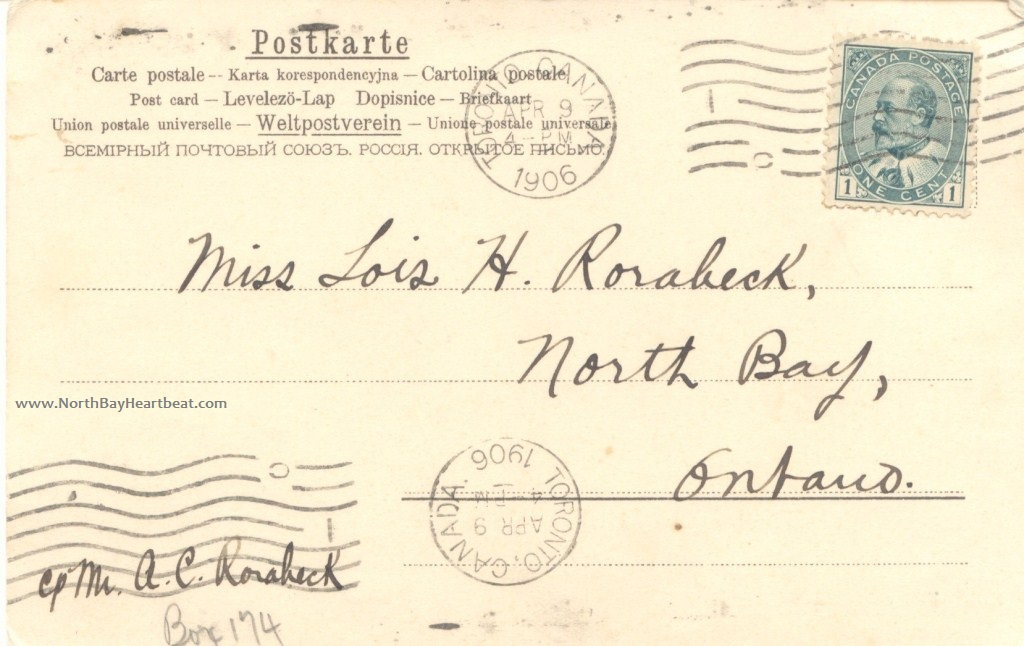 Postkarte
Carte postale -- Karta korespondencyjna — Cartolina postale
Post card — Levelező-Lap Dopisnice — Briefkaart
Union postale universelle — Weltpostverein — Unione postale universale
ВСЕМІРНЫЙ ПОЧТОВЫЙ СОЮЗЪ. РОССІЯ. ОТКРЫТОЕ ПИСЬМО.
TORONTO, CANADA.
APR 9
4 - PM
1906
CANADA POSTAGE
ONE CENT
1 1
Miss Lois H. Rorabeck,
North Bay,
www.NorthBayHeartbeat.com
Ontario.
TORONTO, CANADA.
APR 9
4 - PM
1906
Mr. A. C. Rorabeck
Box 174